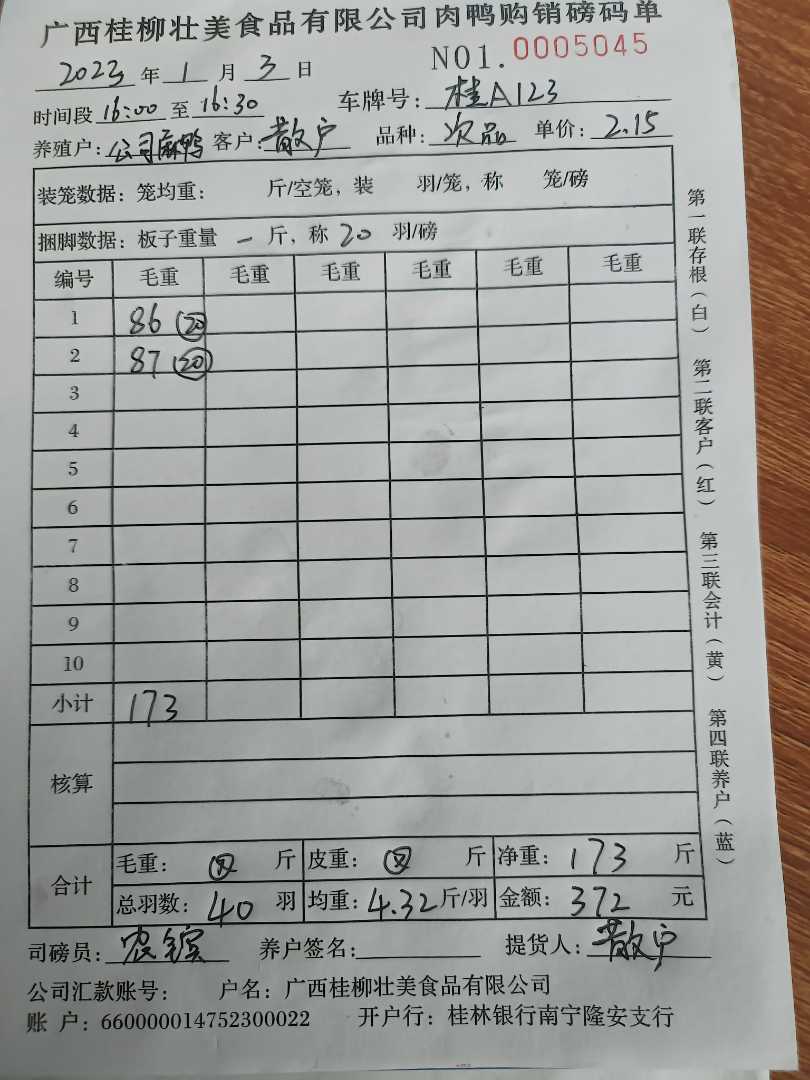 广西桂柳壮美食品有限公司肉鸭购销磅码单
NO1.0005045
2023年1月3日
时间段16:00至16:30 车牌号:桂A123
养殖户:公司麻鸭 客户:散户 品种:次品 单价:2.15
装笼数据:笼均重: 斤/空笼,装 羽/笼,称 笼/磅
捆脚数据:板子重量 一 斤,称 20 羽/磅
编号 毛重 毛重 毛重 毛重 毛重 毛重
1 86 (20)
2 87 (20)
3
4
5
6
7
8
9
10
小计 173
核算
合计
毛重: 斤 皮重: 斤 净重:173 斤
总羽数:40 羽 均重:4.32斤/羽 金额:372 元
司磅员: 养户签名: 提货人:散户
公司汇款账号: 户名:广西桂柳壮美食品有限公司
账 户:660000014752300022 开户行:桂林银行南宁隆安支行
第一联存根(白) 第二联客户(红) 第三联会计(黄) 第四联养户(蓝)